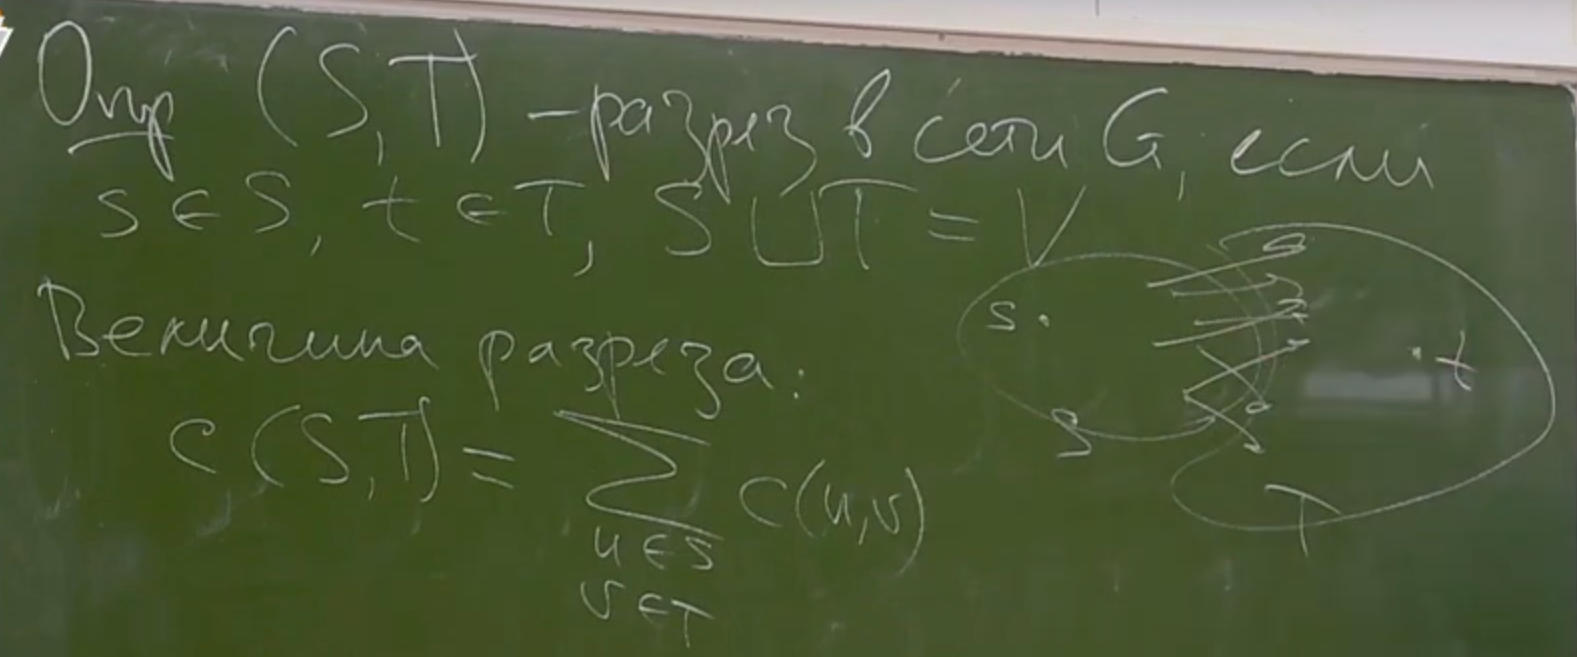 Опр (S,T) - разрез в сети G, если
s ∈ S, t ∈ T, S ⊔ T = V
Величина разреза:
c(S,T) = ∑ c(u,v)
u ∈ S
v ∈ T
s
t
S
T